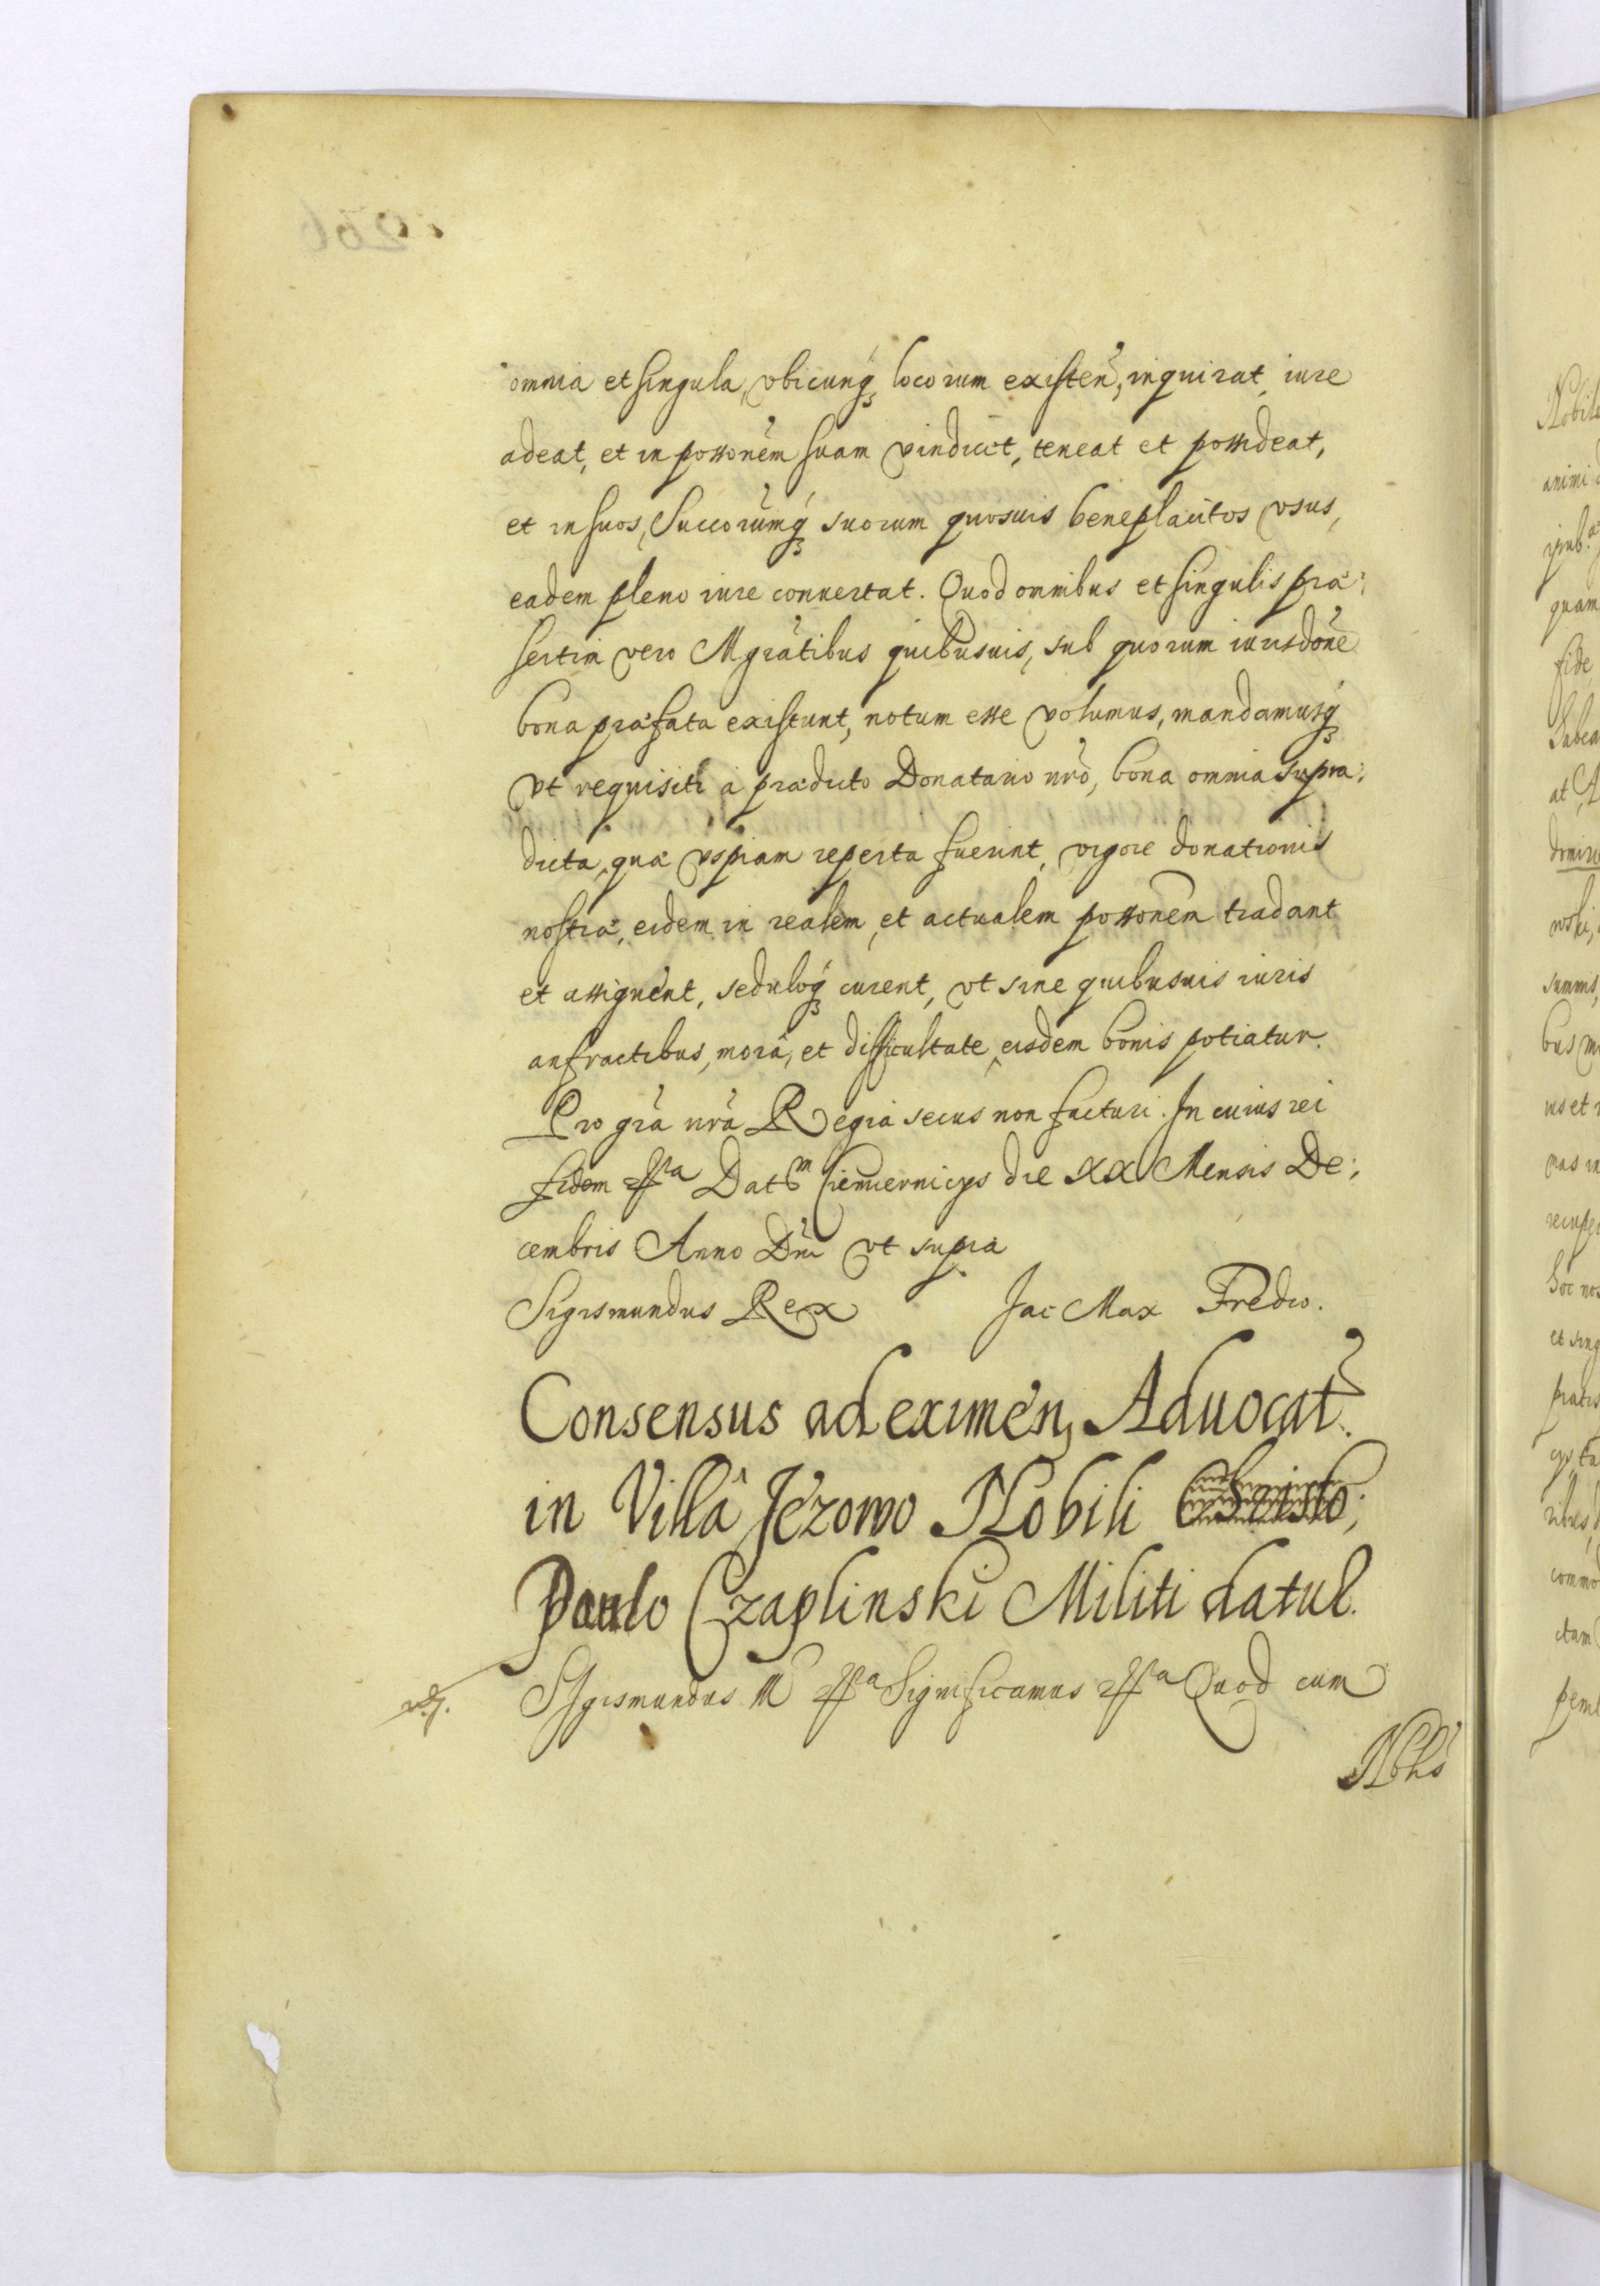 omnia et singula, vbicunq; locorum existen, inquirat, iure
adeat, et in possonem suam vindicet, teneat et possideat,
et in suos, Succorumq; suorum quosuis beneplacitos vsus,
eadem pleno iure conuertat. Quod omnibus et singulis præ:
sertim vero Mgratibus quibusuis, sub quorum iurisdone
bona præfata existunt, notum esse volumus, mandamusq;
vt requisiti à prædicto Donatario nro, bona omnia supra:
dicta, quæ vspiam reperta fuerint, vigore donationis
nostræ, eidem in realem, et actualem possonem tradant
et assignent, seduloq; curent, vt sine quibusuis iuris
anfractibus, morâ, et difficultate, eisdem bonis potiatur.
Pro gra nra Regia secus non facturi. In cuius rei
fidem Dat die XX Mensis De:
cembris Anno Dni vt supra
Sigismundus Rex Jac Max Fredro.
Consensus ad eximen Aduocat.
in Villâ Jézowo Nobili Christo:
Paulo Czaplinski Militi datus.
Sigismundus Significamus Quod cum
Nbhs